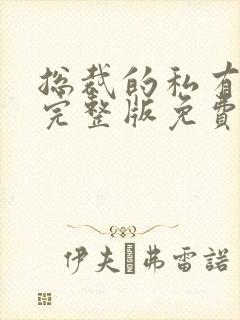 总裁的私有
完整版免費
伊夫·弗雷諾